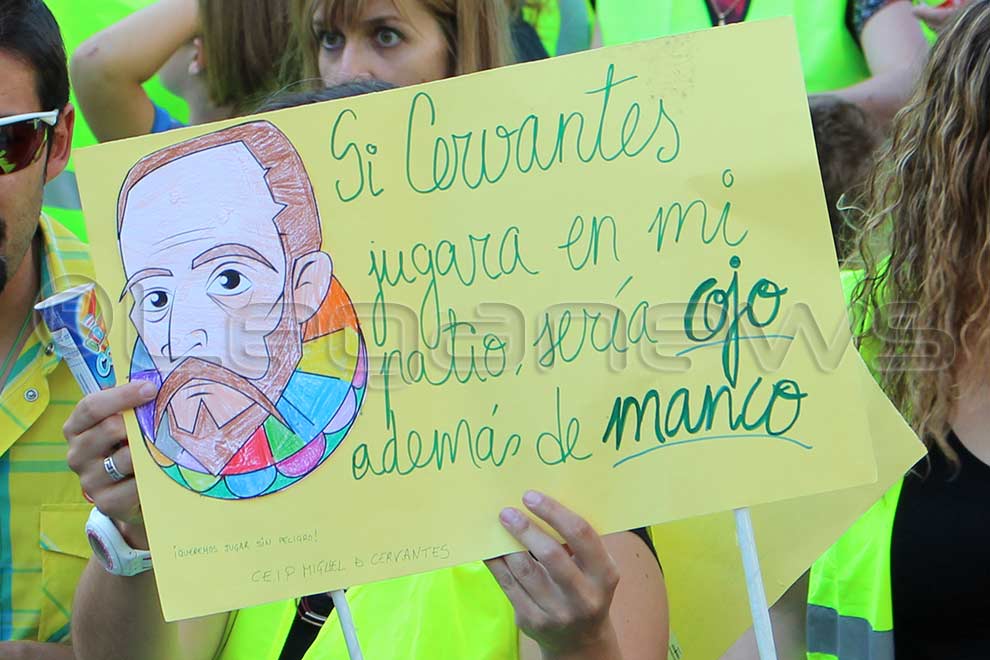 Si Cervantes
jugara en mi
patio, sería ojo
además de manco
¡QUEREMOS JUGAR SIN PELIGRO!
C.E.I.P MIGUEL D CERVANTES
Leganews